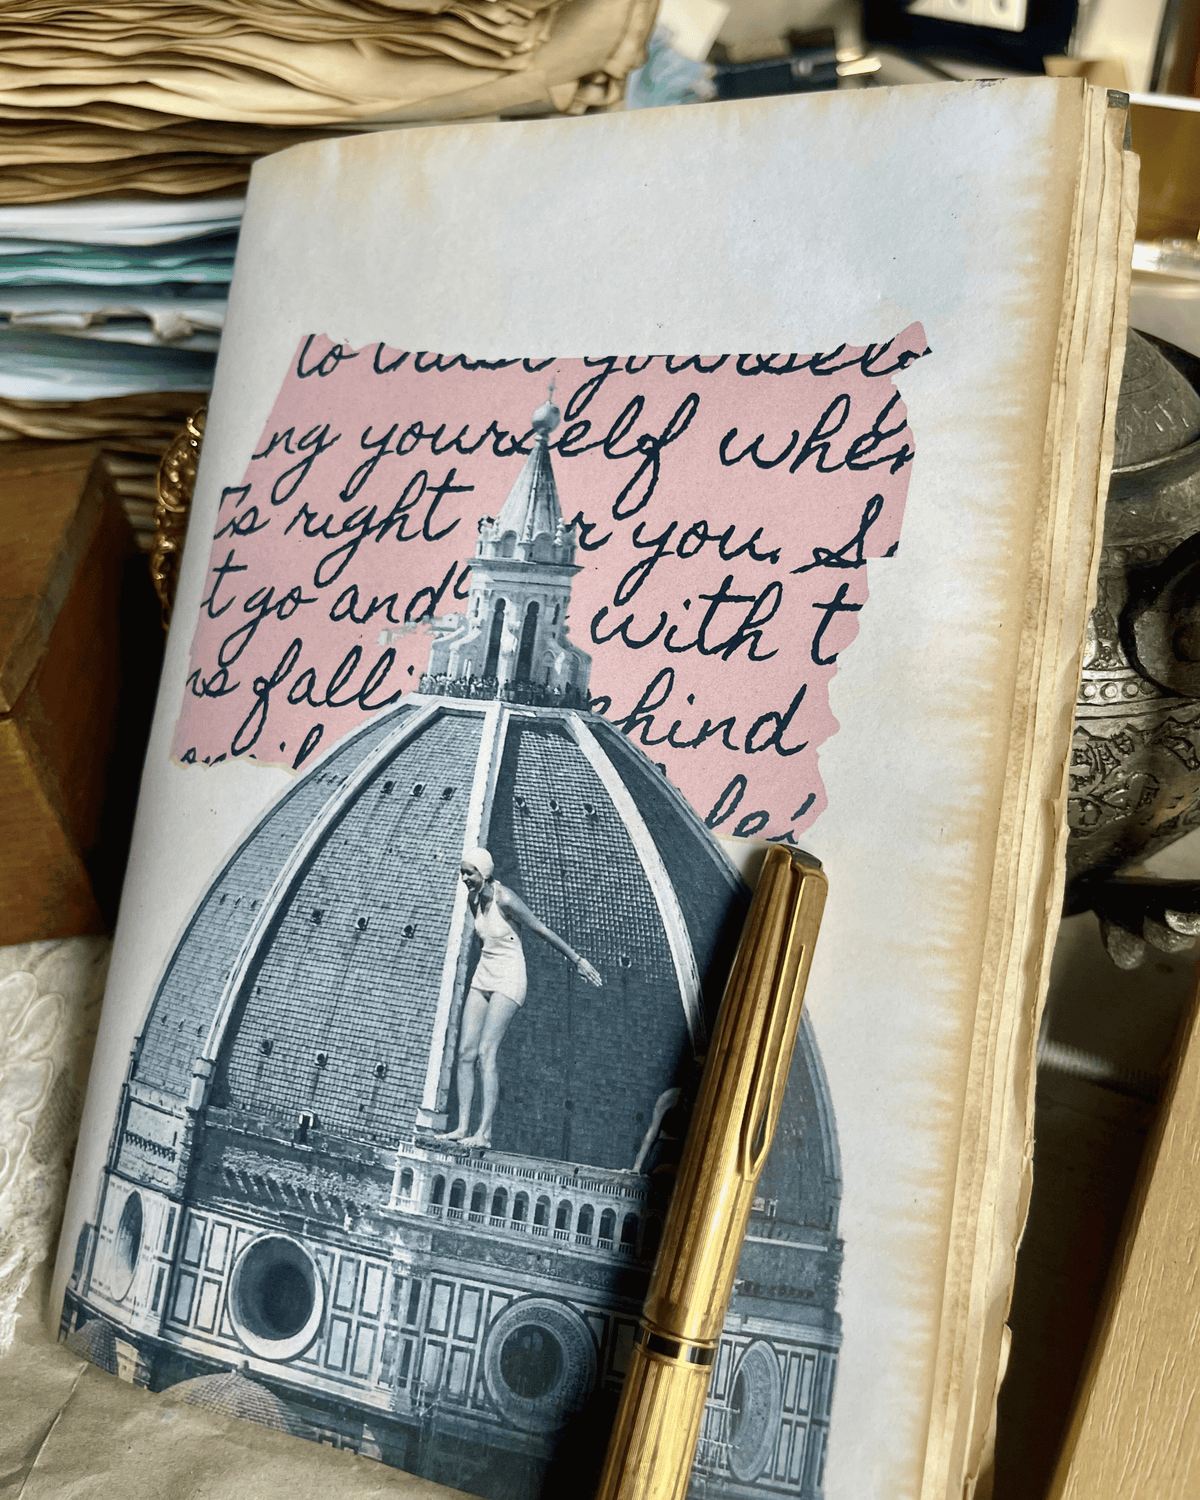 to yourself
ng yourself when
's right r you. S
t go and with t
ns falli hind